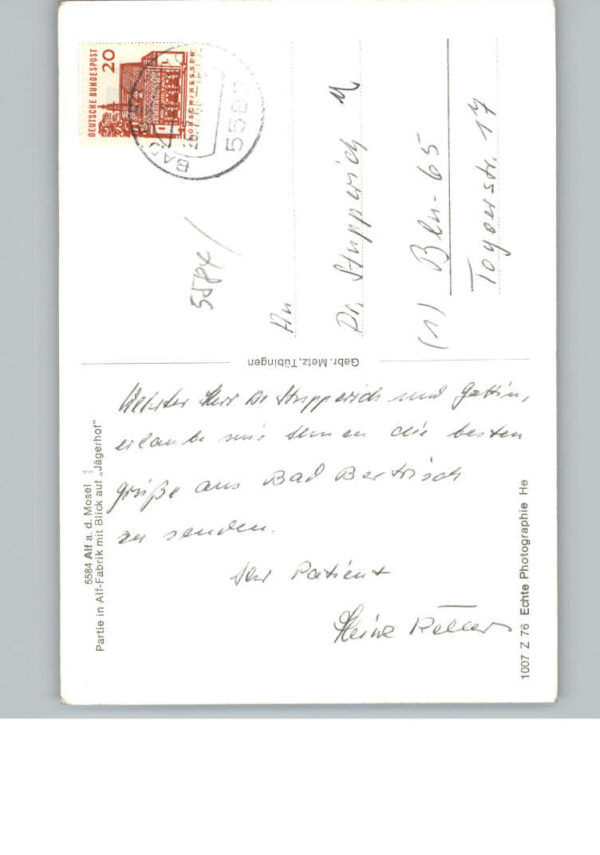 DEUTSCHE BUNDESPOST
20
LORSCH/HESSEN
BAD
558
5584/
An
Dr. Stupperich
(1) Bln-65
Togostr. 17
Gebr. Metz, Tübingen
Werter Herr Dr Stupperich und Gattin,
erlaube mir Ihnen die besten
Grüße aus Bad Bertrich
zu senden.
Ihr Patient
Heinz
5584 Alf a. d. Mosel
Partie in Alf-Fabrik mit Blick auf „Jägerhof"
1007 Z 76 Echte Photographie He